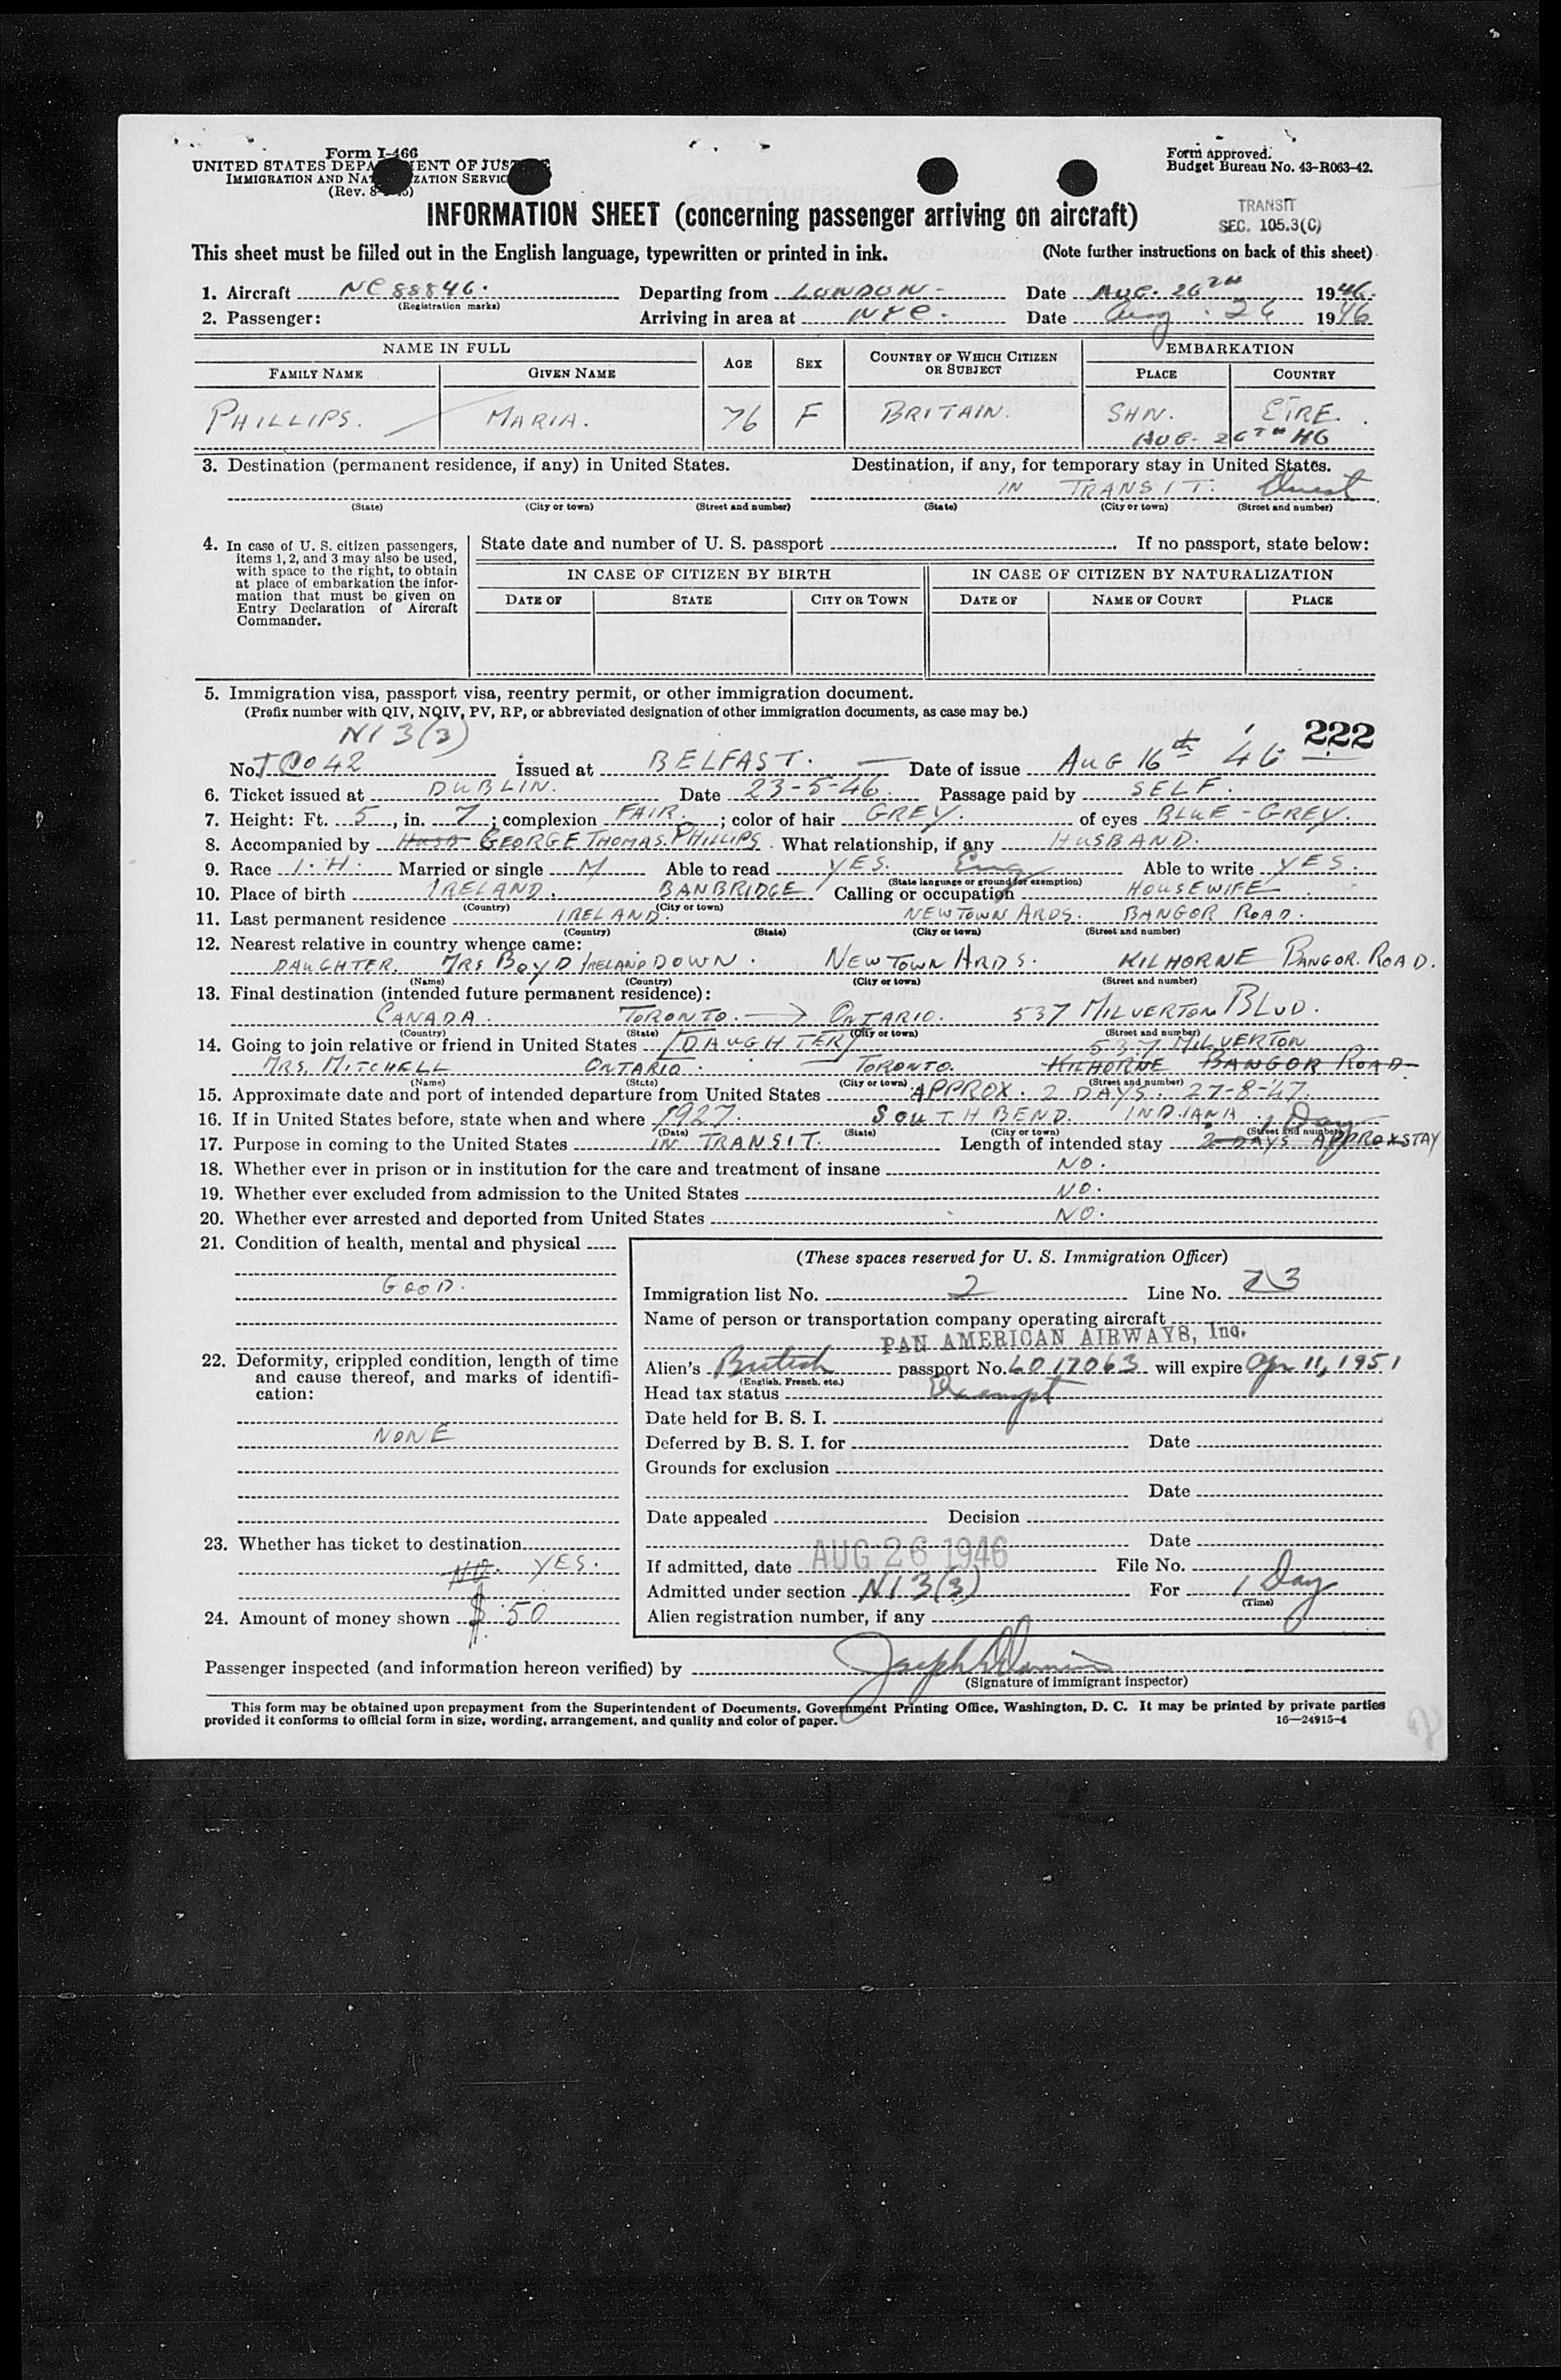 Form I-466
UNITED STATES DEPARTMENT OF JUSTICE
IMMIGRATION AND NATURALIZATION SERVICE
(Rev. 8-
Form approved.
Budget Bureau No. 43-R063-42.
INFORMATION SHEET (concerning passenger arriving on aircraft)
TRANSIT
SEC. 105.3(C)
This sheet must be filled out in the English language, typewritten or printed in ink. (Note further instructions on back of this sheet)
1. Aircraft NC 88846. Departing from LONDON - Date AUG. 26TH 1946.
(Registration marks)
2. Passenger: Arriving in area at NYC. Date Aug. 26 1946
NAME IN FULL AGE SEX COUNTRY OF WHICH CITIZEN OR SUBJECT EMBARKATION
FAMILY NAME GIVEN NAME PLACE COUNTRY
PHILLIPS. MARIA. 76 F BRITAIN. SHN. EIRE.
AUG. 26TH 46
3. Destination (permanent residence, if any) in United States. Destination, if any, for temporary stay in United States.
IN TRANSIT.
(State) (City or town) (Street and number) (State) (City or town) (Street and number)
4. In case of U. S. citizen passengers, items 1, 2, and 3 may also be used, with space to the right, to obtain at place of embarkation the information that must be given on Entry Declaration of Aircraft Commander.
State date and number of U. S. passport If no passport, state below:
IN CASE OF CITIZEN BY BIRTH IN CASE OF CITIZEN BY NATURALIZATION
DATE OF STATE CITY OR TOWN DATE OF NAME OF COURT PLACE
5. Immigration visa, passport visa, reentry permit, or other immigration document.
(Prefix number with QIV, NQIV, PV, RP, or abbreviated designation of other immigration documents, as case may be.)
NI 3(3)
222
No. TC042 Issued at BELFAST. Date of issue AUG 16th '46
6. Ticket issued at DUBLIN. Date 23-5-46. Passage paid by SELF.
7. Height: Ft. 5, in. 7; complexion FAIR.; color of hair GREY. of eyes BLUE-GREY.
8. Accompanied by HUSB GEORGE THOMAS. PHILLIPS. What relationship, if any HUSBAND.
9. Race I.H. Married or single M Able to read YES. Eng Able to write YES.
(State language or ground for exemption)
10. Place of birth IRELAND. BANBRIDGE Calling or occupation HOUSEWIFE
(Country) (City or town)
11. Last permanent residence IRELAND. NEWTOWN ARDS. BANGOR ROAD.
(Country) (State) (City or town) (Street and number)
12. Nearest relative in country whence came:
DAUGHTER. MRS BOYD IRELAND DOWN. NEWTOWN ARDS. KILHORNE BANGOR. ROAD.
(Name) (Country) (City or town) (Street and number)
13. Final destination (intended future permanent residence):
CANADA. TORONTO. ONTARIO. 537 MILVERTON BLVD.
(Country) (State) (City or town) (Street and number)
14. Going to join relative or friend in United States (DAUGHTER) 537 MILVERTON
MRS. MITCHELL ONTARIO. TORONTO. KILHORNE BANGOR ROAD
(Name) (State) (City or town) (Street and number)
15. Approximate date and port of intended departure from United States APPROX. 2 DAYS. 27-8-47.
16. If in United States before, state when and where 1927. SOUTH BEND. INDIANA.
(Date) (State) (City or town) (Street and number)
1 Day
17. Purpose in coming to the United States IN TRANSIT. Length of intended stay 2 DAYS APPROX STAY
18. Whether ever in prison or in institution for the care and treatment of insane NO.
19. Whether ever excluded from admission to the United States NO.
20. Whether ever arrested and deported from United States NO.
21. Condition of health, mental and physical
GOOD.
22. Deformity, crippled condition, length of time and cause thereof, and marks of identification:
NONE
23. Whether has ticket to destination
NO. YES.
24. Amount of money shown $50
(These spaces reserved for U. S. Immigration Officer)
Immigration list No. 2 Line No. 23
Name of person or transportation company operating aircraft
PAN AMERICAN AIRWAYS, Inc.
Alien's British passport No. L017063 will expire Apr 11, 1951
(English, French, etc.)
Head tax status Exempt
Date held for B. S. I.
Deferred by B. S. I. for Date
Grounds for exclusion
Date
Date appealed Decision
Date
If admitted, date AUG 26 1946 File No.
Admitted under section NI 3(3) For 1 Day
(Time)
Alien registration number, if any
Passenger inspected (and information hereon verified) by
(Signature of immigrant inspector)
This form may be obtained upon prepayment from the Superintendent of Documents, Government Printing Office, Washington, D. C. It may be printed by private parties
provided it conforms to official form in size, wording, arrangement, and quality and color of paper. 16—24915-4